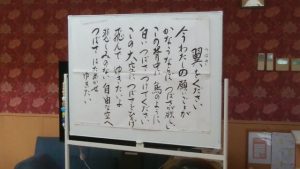 翼をください
今わたしの願いごとが
かなうならば つばさが欲しい
この背中に 鳥のように
白いつばさ つけてください
この大空に つばさをひろげ
飛んで ゆきたいよ
悲しみのない 自由な空へ
つばさ はためかせ
ゆきたい